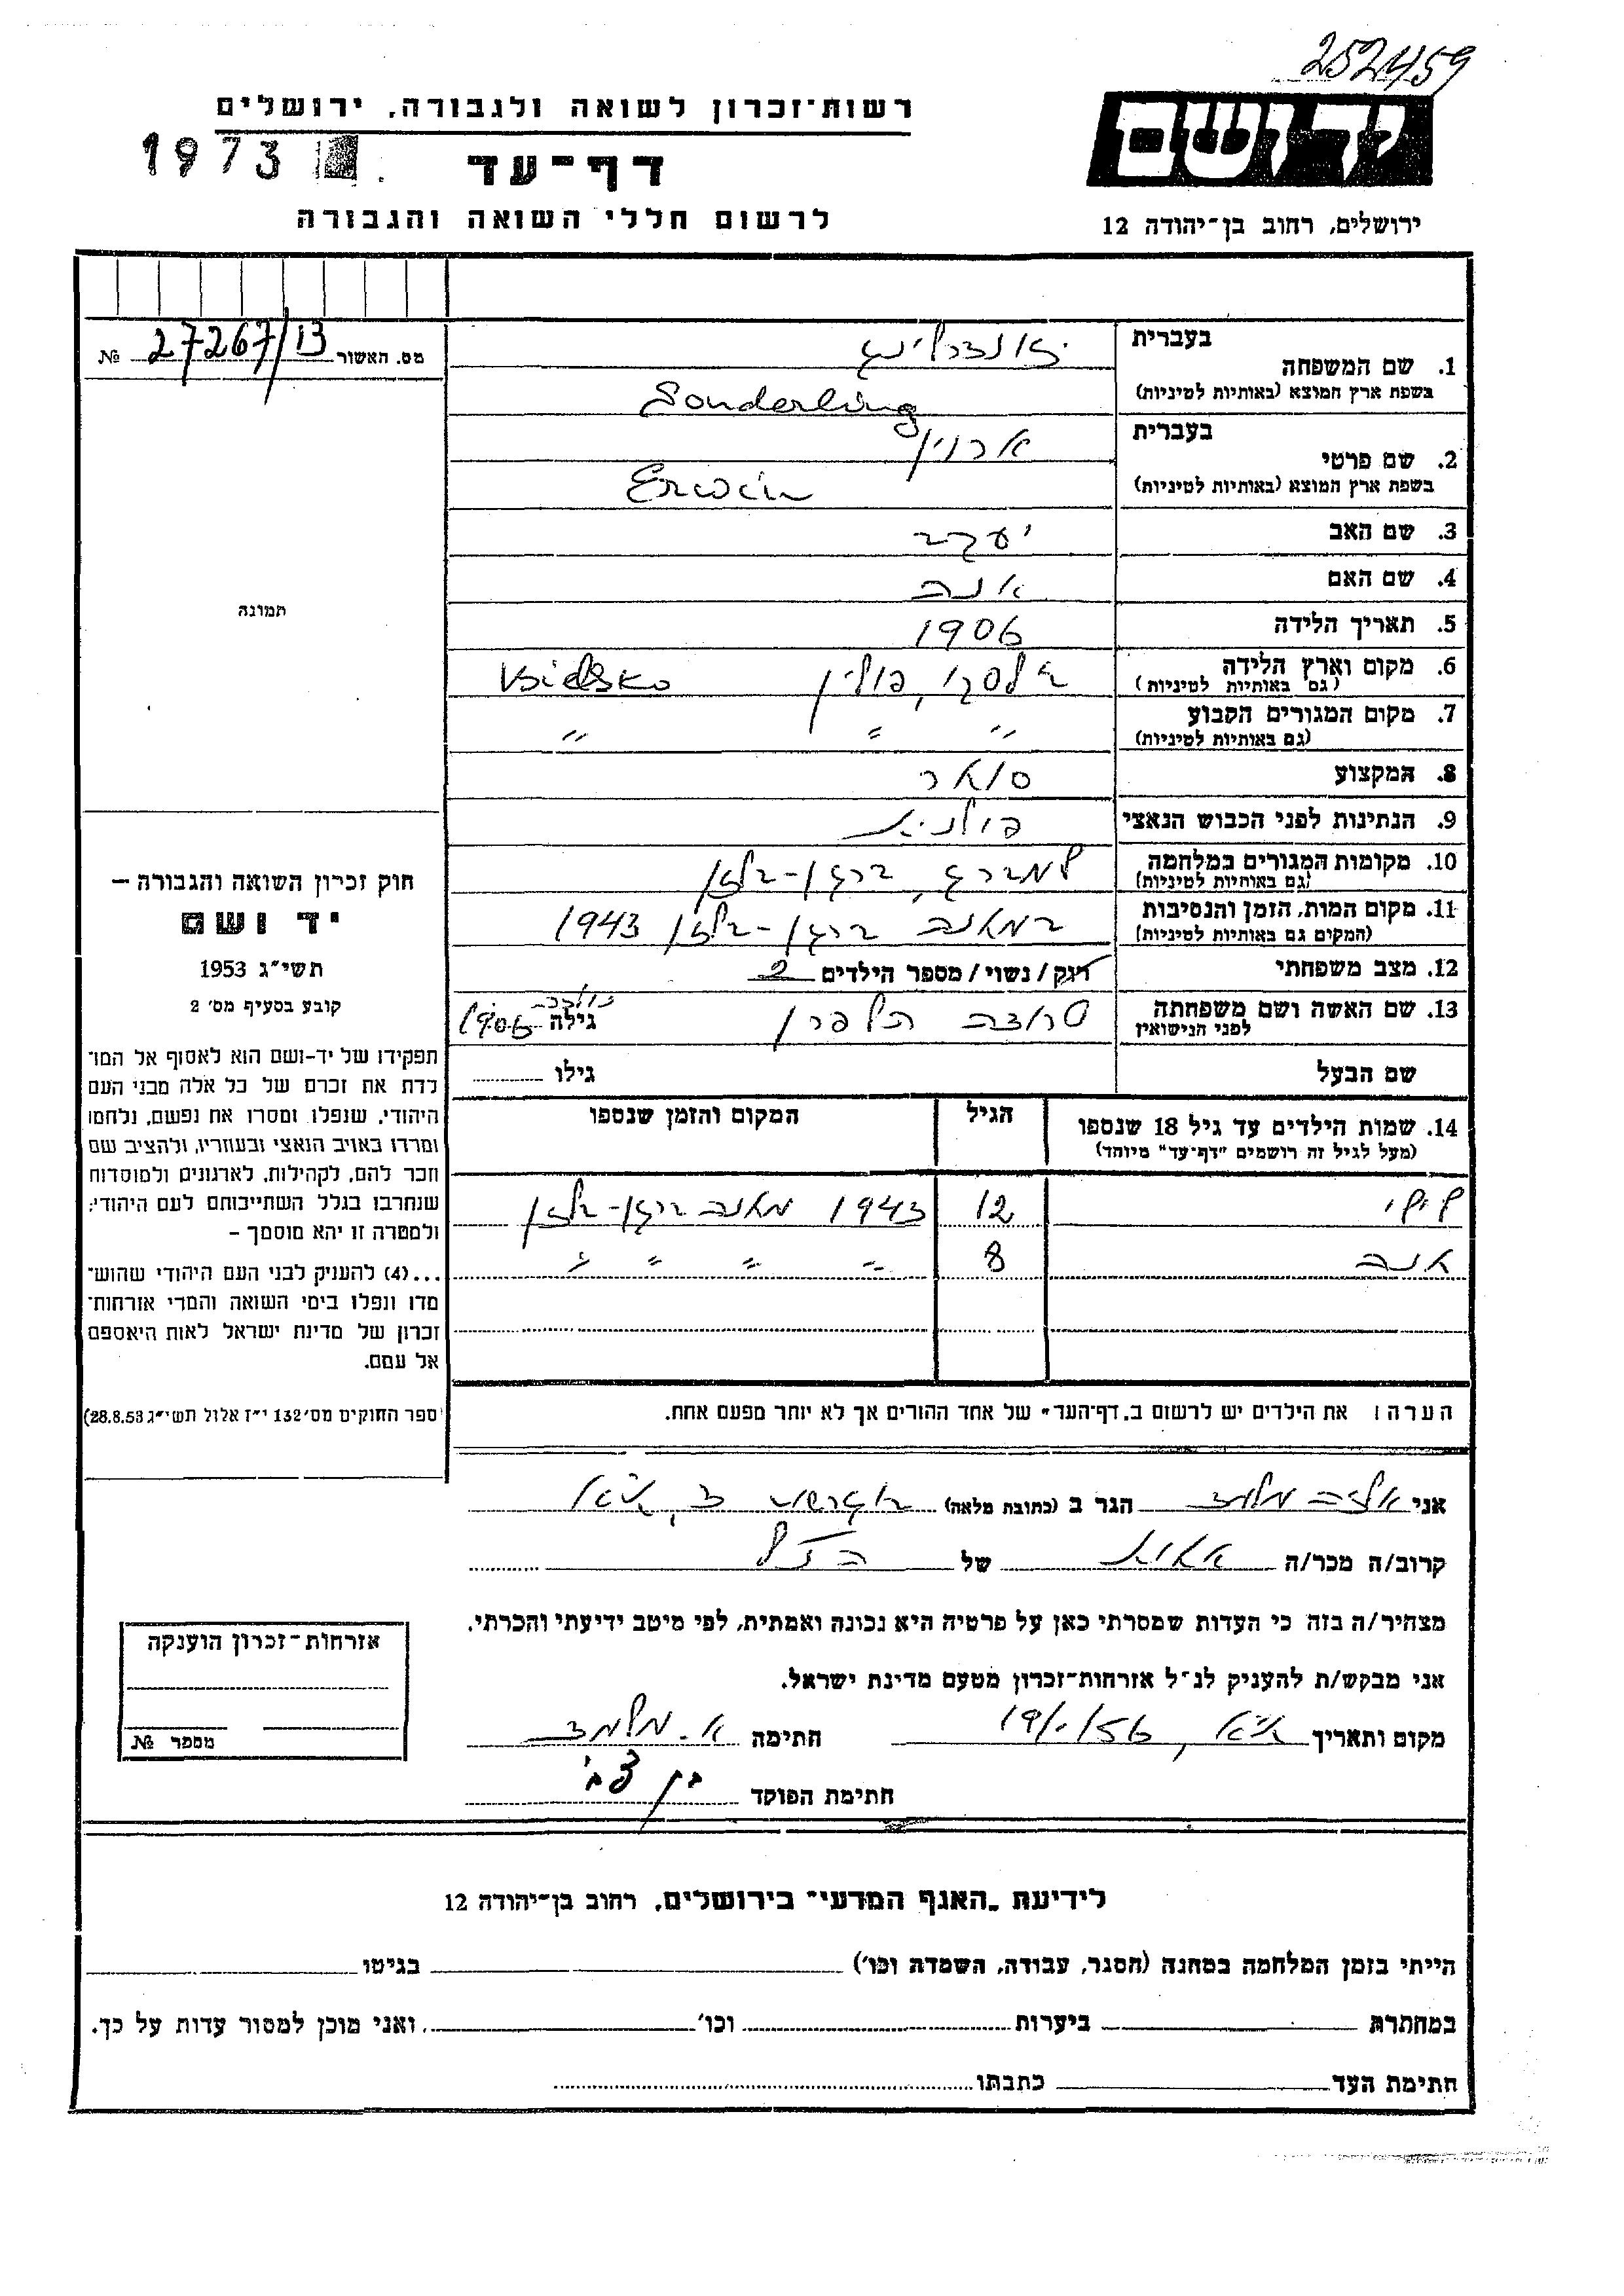 252459
רשות־זכרון לשואה ולגבורה, ירושלים
יד ושם
1973
דף־עד
לרשום חללי השואה והגבורה
ירושלים, רחוב בן־יהודה 12
מס. האשור 27267/13 №
1. שם המשפחה
בעברית
זונדרלינג
בשפת ארץ המוצא (באותיות לטיניות)
Sonderling
2. שם פרטי
בעברית
ארוין
בשפת ארץ המוצא (באותיות לטיניות)
Erwin
3. שם האב יעקב
4. שם האם אנה
תמונה
5. תאריך הלידה 1906
6. מקום וארץ הלידה בילסקו, פולין Bielsko
(גם באותיות לטיניות)
7. מקום המגורים הקבוע " " "
(גם באותיות לטיניות)
8. המקצוע סוחר
9. הנתינות לפני הכבוש הנאצי פולנית
10. מקומות המגורים במלחמה למברג, ברגן-בלזן
(גם באותיות לטיניות)
11. מקום המות, הזמן והנסיבות במחנה ברגן-בלזן 1943
(המקום גם באותיות לטיניות)
12. מצב משפחתי רוק / נשוי / מספר הילדים 2
13. שם האשה ושם משפחתה הלפרן גילה נולדה 1906
לפני הנישואין
שם הבעל גילו
14. שמות הילדים עד גיל 18 שנספו הגיל המקום והזמן שנספו
(מעל לגיל זה רושמים "דף־עד" מיוחד)
12 1943 מחנה ברגן-בלזן
אנה 8 " " " "
הערה: את הילדים יש לרשום ב„דף־העד" של אחד ההורים אך לא יותר מפעם אחת.
חוק זכרון השואה והגבורה –
יד ושם
תשי"ג 1953
קובע בסעיף מס' 2
תפקידו של יד-ושם הוא לאסוף אל המו־
לדת את זכרם של כל אלה מבני העם
היהודי, שנפלו ומסרו את נפשם, נלחמו
ומרדו באויב הנאצי ובעוזריו, ולהציב שם
וזכר להם, לקהילות, לארגונים ולמוסדות
שנחרבו בגלל השתייכותם לעם היהודי;
ולמטרה זו יהא מוסמך –
...(4) להעניק לבני העם היהודי שהוש־
מדו ונפלו בימי השואה והמרי אזרחות־
זכרון של מדינת ישראל לאות היאספם
אל עמם.
(ספר החוקים מס' 132 י"ז אלול תשי"ג 28.8.53)
אני הגר ב (כתובת מלאה) ת"א
קרוב/ה מכר/ה אחות של הנ"ל
מצהיר/ה בזה כי העדות שמסרתי כאן על פרטיה היא נכונה ואמתית, לפי מיטב ידיעתי והכרתי.
אני מבקש/ת להעניק לנ"ל אזרחות־זכרון מטעם מדינת ישראל.
מקום ותאריך ת"א, חתימה
חתימת הפוקד בן צבי
אזרחות־זכרון הוענקה
מספר №
לידיעת „האגף המדעי" בירושלים, רחוב בן־יהודה 12
הייתי בזמן המלחמה במחנה (הסגר, עבודה, השמדה וכו') בגיטו
במחתרת ביערות וכו' ואני מוכן למסור עדות על כך.
חתימת העד כתבתו